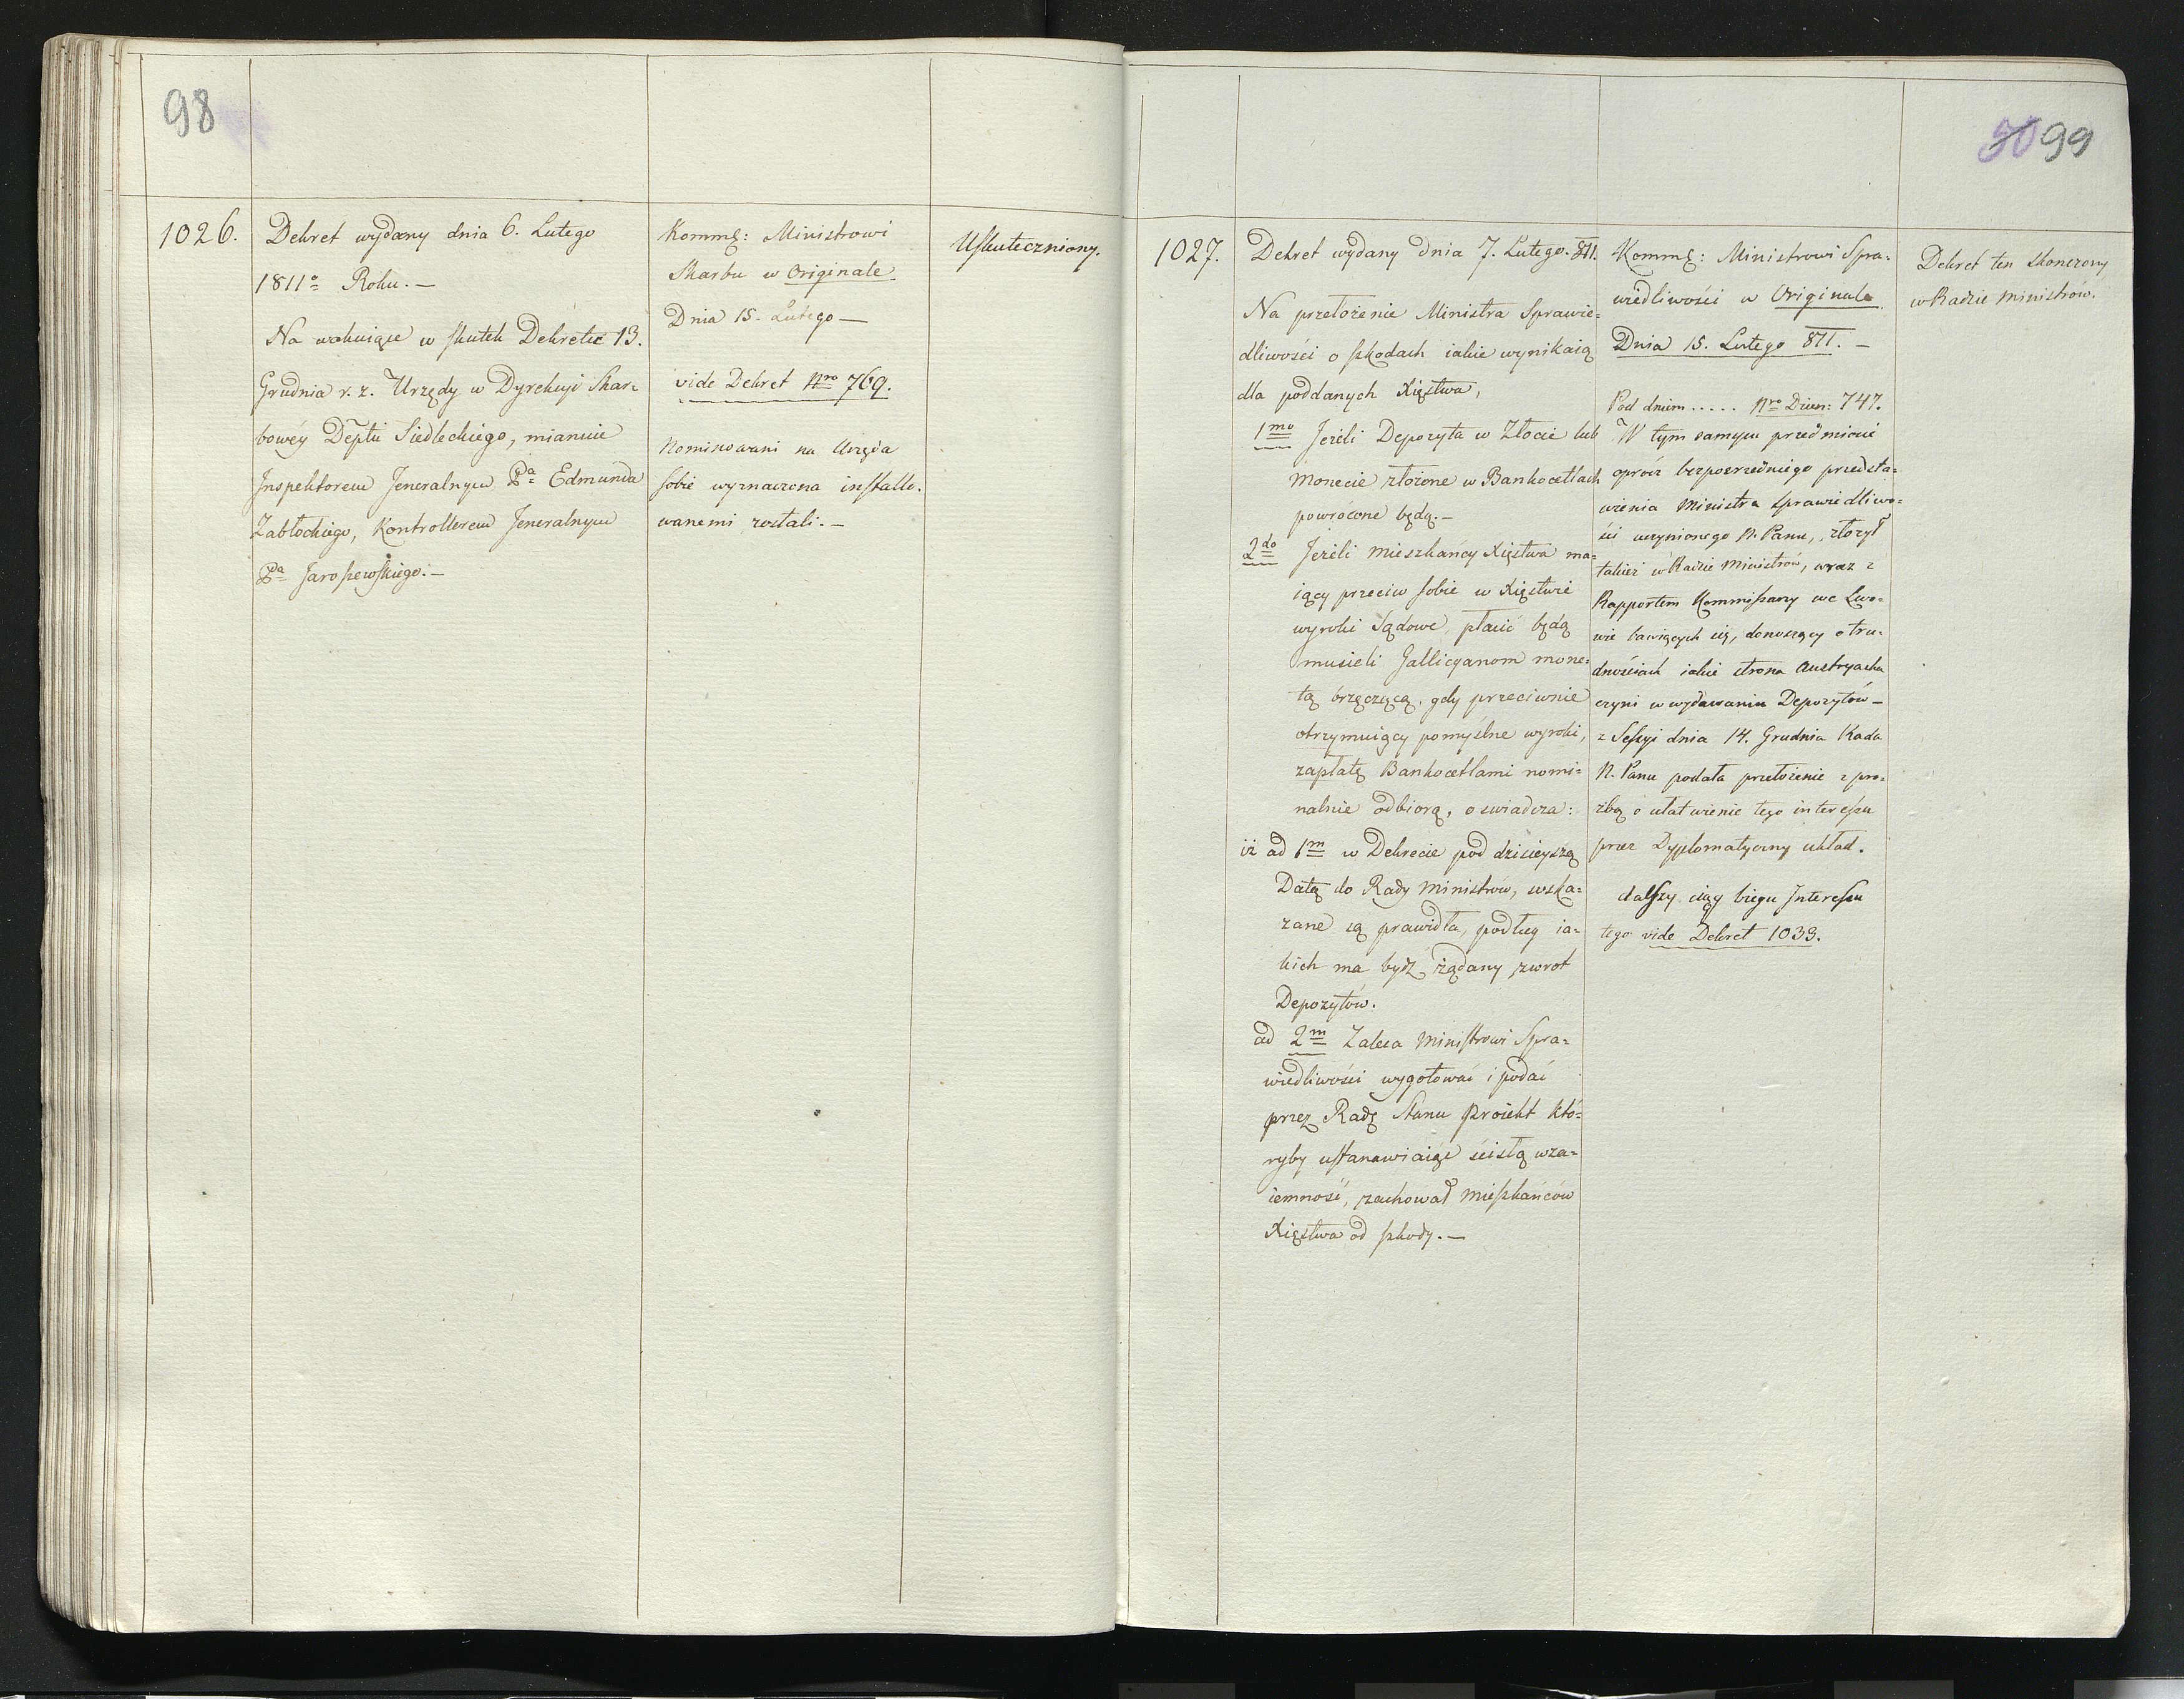 98
1026.
Dekret wydany dnia 6. Lutego
1811º Roku.—
Na wakuiące w skutek Dekretu 13.
Grudnia r. z. Urzędy w Dyrekcyi Skar=
bowéy Deptu Siedleckiego, mianuie
Inspektorem Jeneralnym Pa Edmunda
Zabłockiego, Kontrollerem Jeneralnym
Pa Jaroszewskiego.—
Kommę: Ministrowi
Skarbu w Originale
Dnia 15. Lutego—
vide Dekret Nro 769.
Nominowani na Urzęda
sobie wyznaczona installo.
wanemi zostali.—
Uskuteczniony.
50 99
1027.
Dekret wydany dnia 7. Lutego. 811.
Na przełożenie Ministra Sprawie=
dliwości o szkodach iakie wynikaią
dla poddanych Xięstwa,
1mo Jeżeli Depozyta w Złocie lub
Monecie złożone w Bankocetlach
powrócone będą.—
2do Jeżeli Mieszkańcy Xięstwa ma=
iący przeciw sobie w Xięstwie
wyroki Sądowe, płacić będą
musieli Gallicyanom mone=
tą brzęczącą, gdy przeciwnie
otrzymuiący pomyślne wyroki,
zapłatę Bankocetlami nomi=
nalnie odbiorą, oswiadcza:
iż ad 1m w Dekrecie pod dzisieyszą
Datą do Rady Ministrów, wska=
zane są prawidła, podług ia=
kich ma bydź żądany zwrot
Depozytów.
ad 2m Zaleca Ministrowi Spra=
wiedliwości wygotować i podać
przez Radę Stanu Proiekt któ=
ryby ustanawiaiąc ścisłą wza=
iemność, zachował Mieszkańców
Xięstwa od szkody.—
Kommę: Ministrowi Spra=
wiedliwości w Originale
Dnia 15. Lutego 811.—
Pod dniem ..... Nro Dzien: 747.
W tym samym przedmiocie
oprócz bezpośredniego przedsta=
wienia Ministra Sprawiedliwo=
ści uczynionego N. Panu, złożył
takież w Radzie Ministrów, wraz z
Rapportem Kommissarzy we Lwo=
wie bawiących się, donoszący o tru=
dnościach iakie strona Austryacka
czyni w wydawaniu Depozytów—
z Sessyi dnia 14. Grudnia Rada
N. Panu podała przełożenie z pro=
źbą o ułatwienie tego interessu
przez Dyplomatyczny układ.
dalszy ciąg biegu Interessu
tego vide Dekret 1033.
Dekret ten skończony
w Radzie Ministrów.